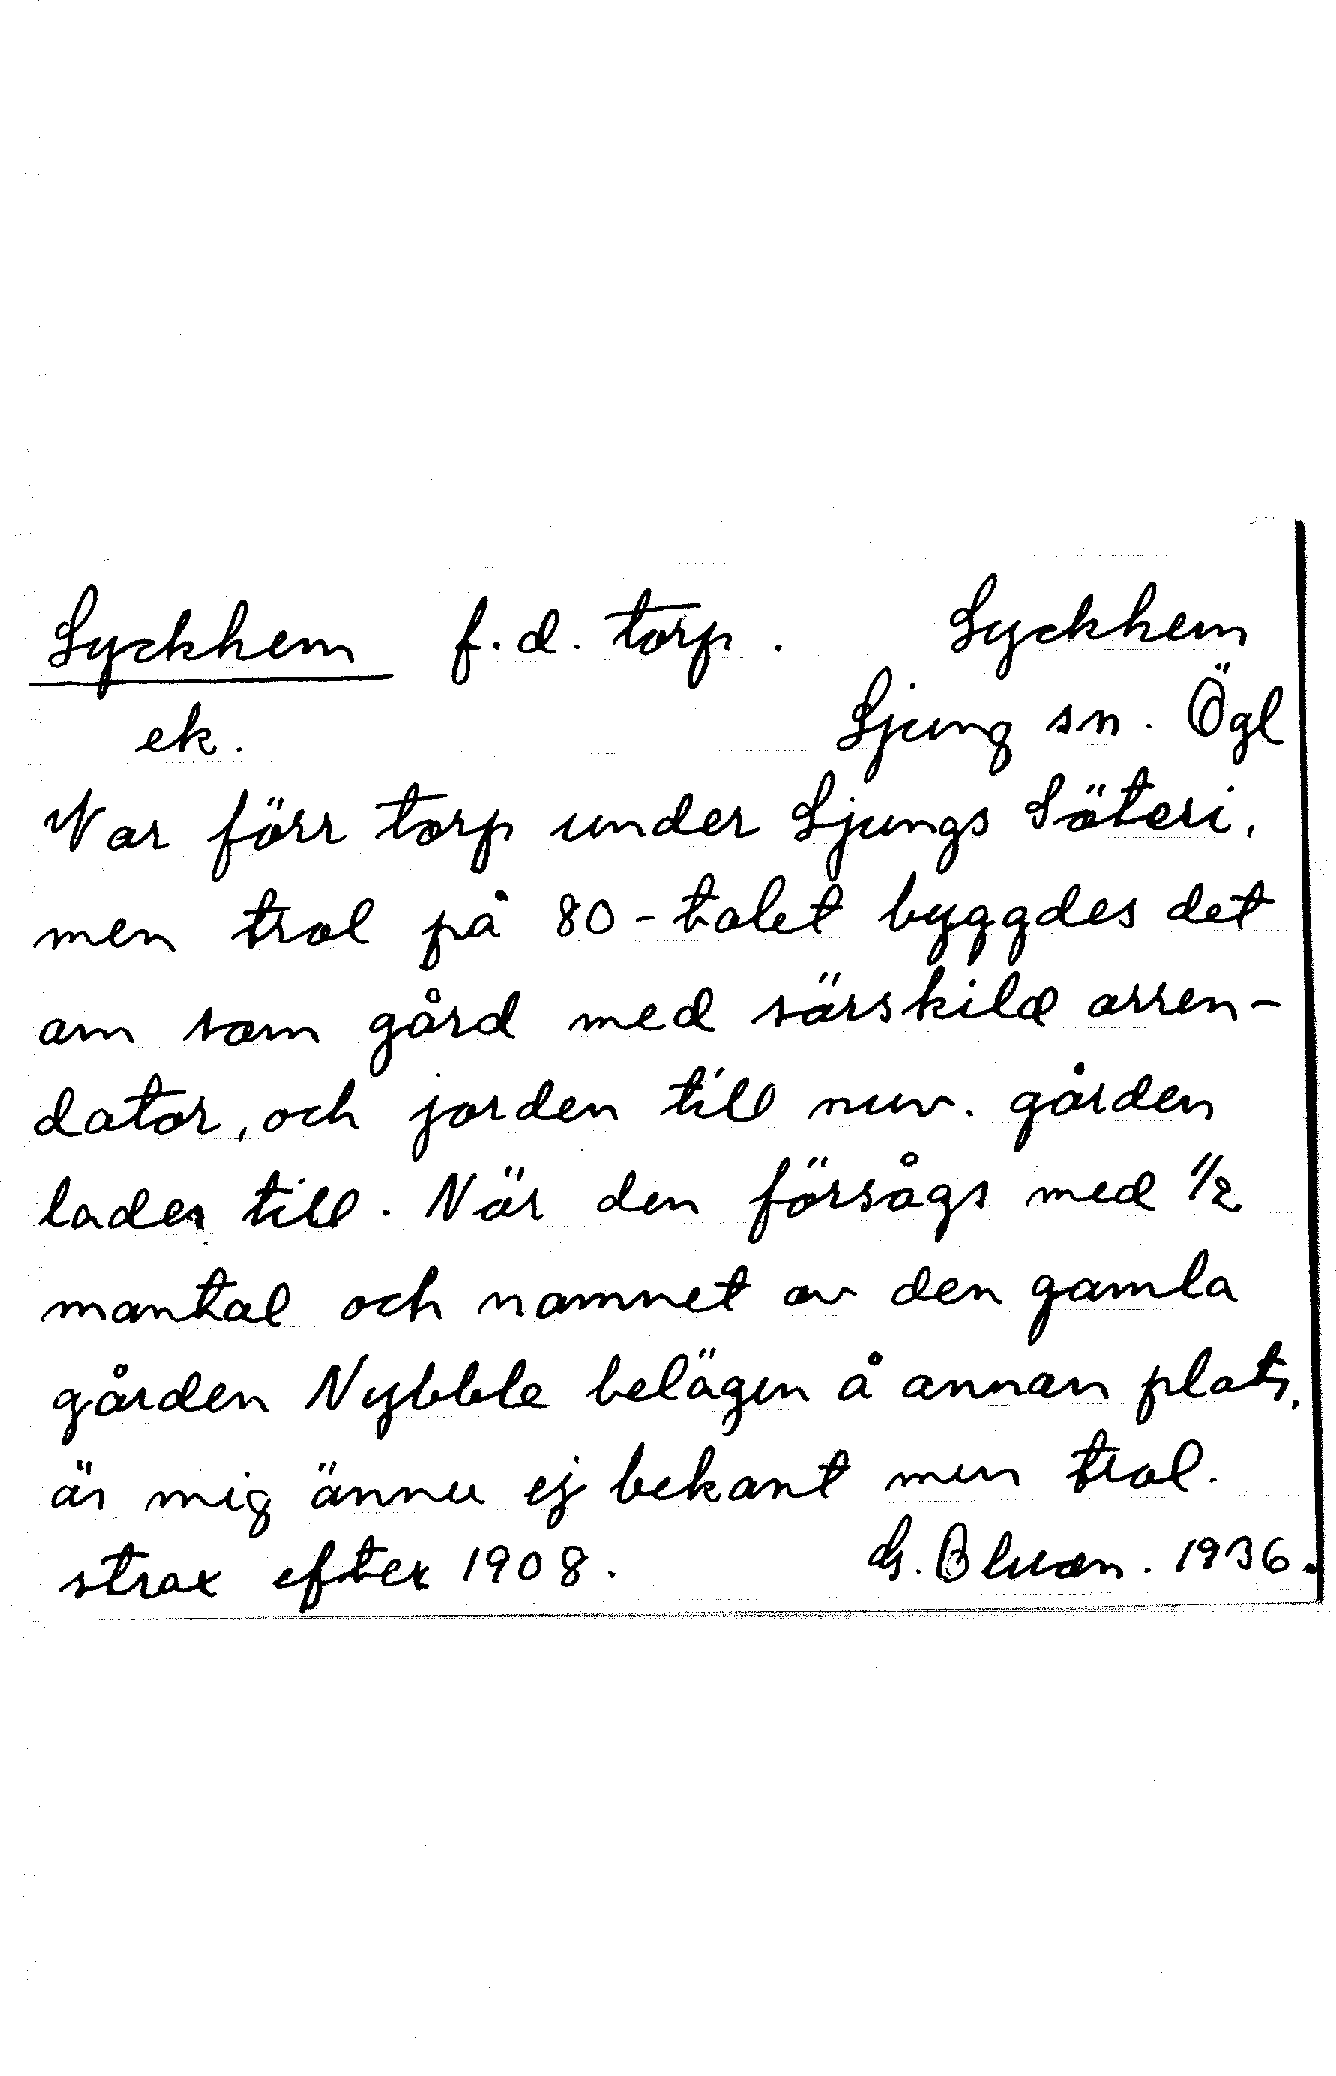 Lyckhem f.d. torp. Lyckhem
ek. Ljung sn. Ögl
Var förr torp under Ljungs Säteri,
men trol på 80-talet byggdes det
om som gård med särskild arren-
dator, och jorden till nuv. gården
lades till. När den försågs med 1/2
mantal och namnet av den gamla
gården Nybble belägen å annan plats,
är mig ännu ej bekant men trol.
strax efter 1908. G. 1936.